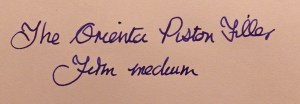 The Orienta Piston Filler
Firm medium